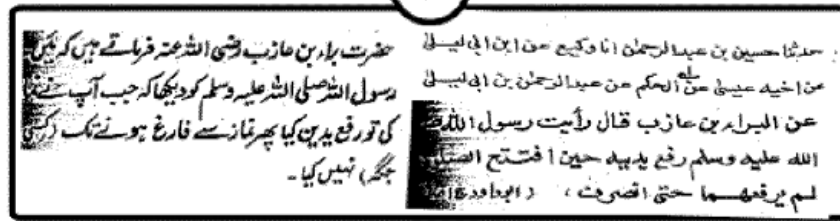 حدثنا حسین بن عبدالرحمٰن انا وکیع عن ابن ابی لیلیٰ
عن اخیہ عیسیٰ عن الحکم عن عبدالرحمٰن بن ابی لیلیٰ
عن البراء بن عازب قال رأیت رسول اللہ
اللہ علیہ وسلم رفع یدیہ حین افتتح
لم یرفعھما حتی انصرف ، (ابوداود
حضرت براء بن عازب رضی اللہ عنہ فرماتے ہیں کہ میں
رسول اللہ صلی اللہ علیہ وسلم کو دیکھا کہ جب آپ نے
کی تو رفع یدین کیا پھر نماز سے فارغ ہونے تک (کسی
جگہ) نہیں کیا۔